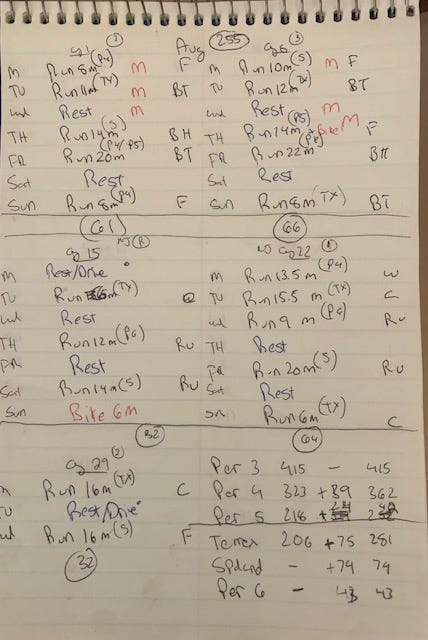 Aug 255
ag 1 (P4)
M Run 8m M F
TU Run 11m (TX) M BT
wd Rest M
TH Run 14m (S) BH
FR Run 20m (P4/P5) BT
Sat Rest
Sun Run 8m (P4) F
61
ag 8
M Run 10m (S) M F
TU Run 12m (TX) BT
wd Rest M
TH Run 14m (P5) Bike M F
FR Run 22m BH
Sat Rest
Sun Run 8m (TX) BT
66
ag 15 NJ
M Rest/Drive
TU Run (TX)
wd Rest
TH Run 12m (P6) RU
FR Rest
Sat Run 14m (S) RU
Sun Bike 6m
32
NJ ag 22
M Run 13.5m (P4) W
TU Run 15.5 m (TX) C
wd Run 9 m (P6) RU
TH Rest
FR Run 20m (S) RU
Sat Rest
Sun Run 6m (TX) C
64
ag 29
M Run 16m (TX) C
TU Rest/Drive
wd Run 16m (S) F
32
Per 3 415 - 415
Per 4 323 +39 362
Per 5 218
Terrex 206 +75 281
Spdcrd - +74 74
Per 6 - 43 43